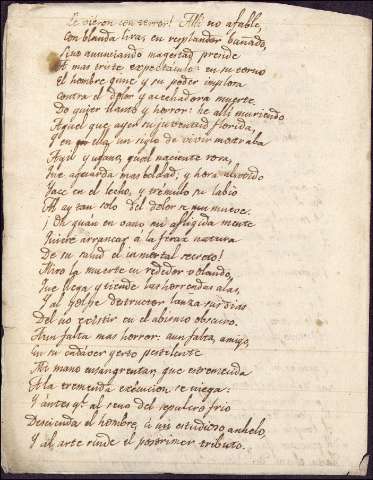 Le vieron con terror! Alli no afable,
con blanda lira, en resplandor bañado,
Sino anunciando magestad preside
A mas triste espectáculo: en su torno
El hombre gime y su poder implora
contra el dolor y acechadora muerte.
Do quier llanto y horror: he alli muriendo
Aquel que ayer su juventud florida,
Y en ella, un siglo de vivir mostraba
Ayer y ufano, qual naciente rosa,
que aguarda mas beldad; y hora
Yace en el lecho, y trémulo su labio
Al ay tan solo del dolor se mueve.
¡Oh quán en vano mi afligida mente
Quiere arrancar á la feraz natura
De su salud el inmortal secreto!
Miro la muerte en rededor volando,
Que llega y tiende las horrendas alas,
Y al golpe destructor lanza sus dias
Del no existir en el abismo obscuro.
Aun falta mas horror: aun falta, amigo,
En su cadáver yerto pestilente
Mi mano ensangrentar, que estremecida
A la tremenda execucion se niega:
Y ántes qe. al seno del sepulcro frio
Descienda el hombre, á mi estudioso anhelo,
Y al arte rinde el postrimer tributo.